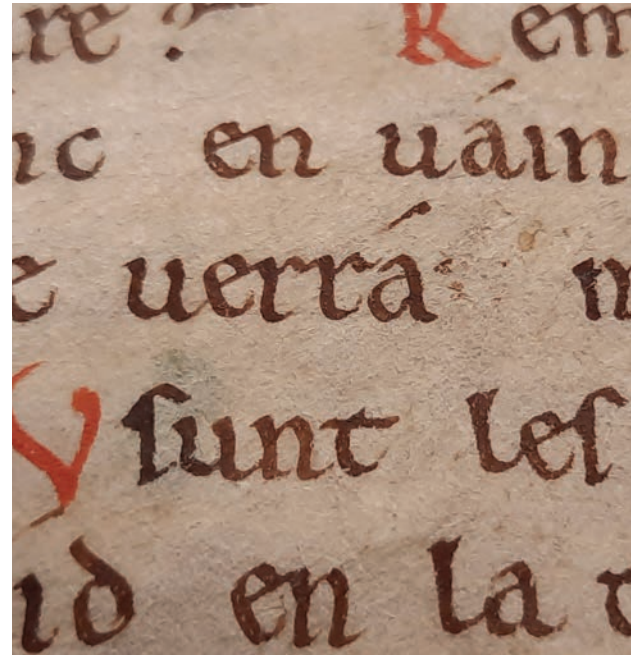 re Rem
ic en uáin
e uerrá m
V ſunt leſ
id en la